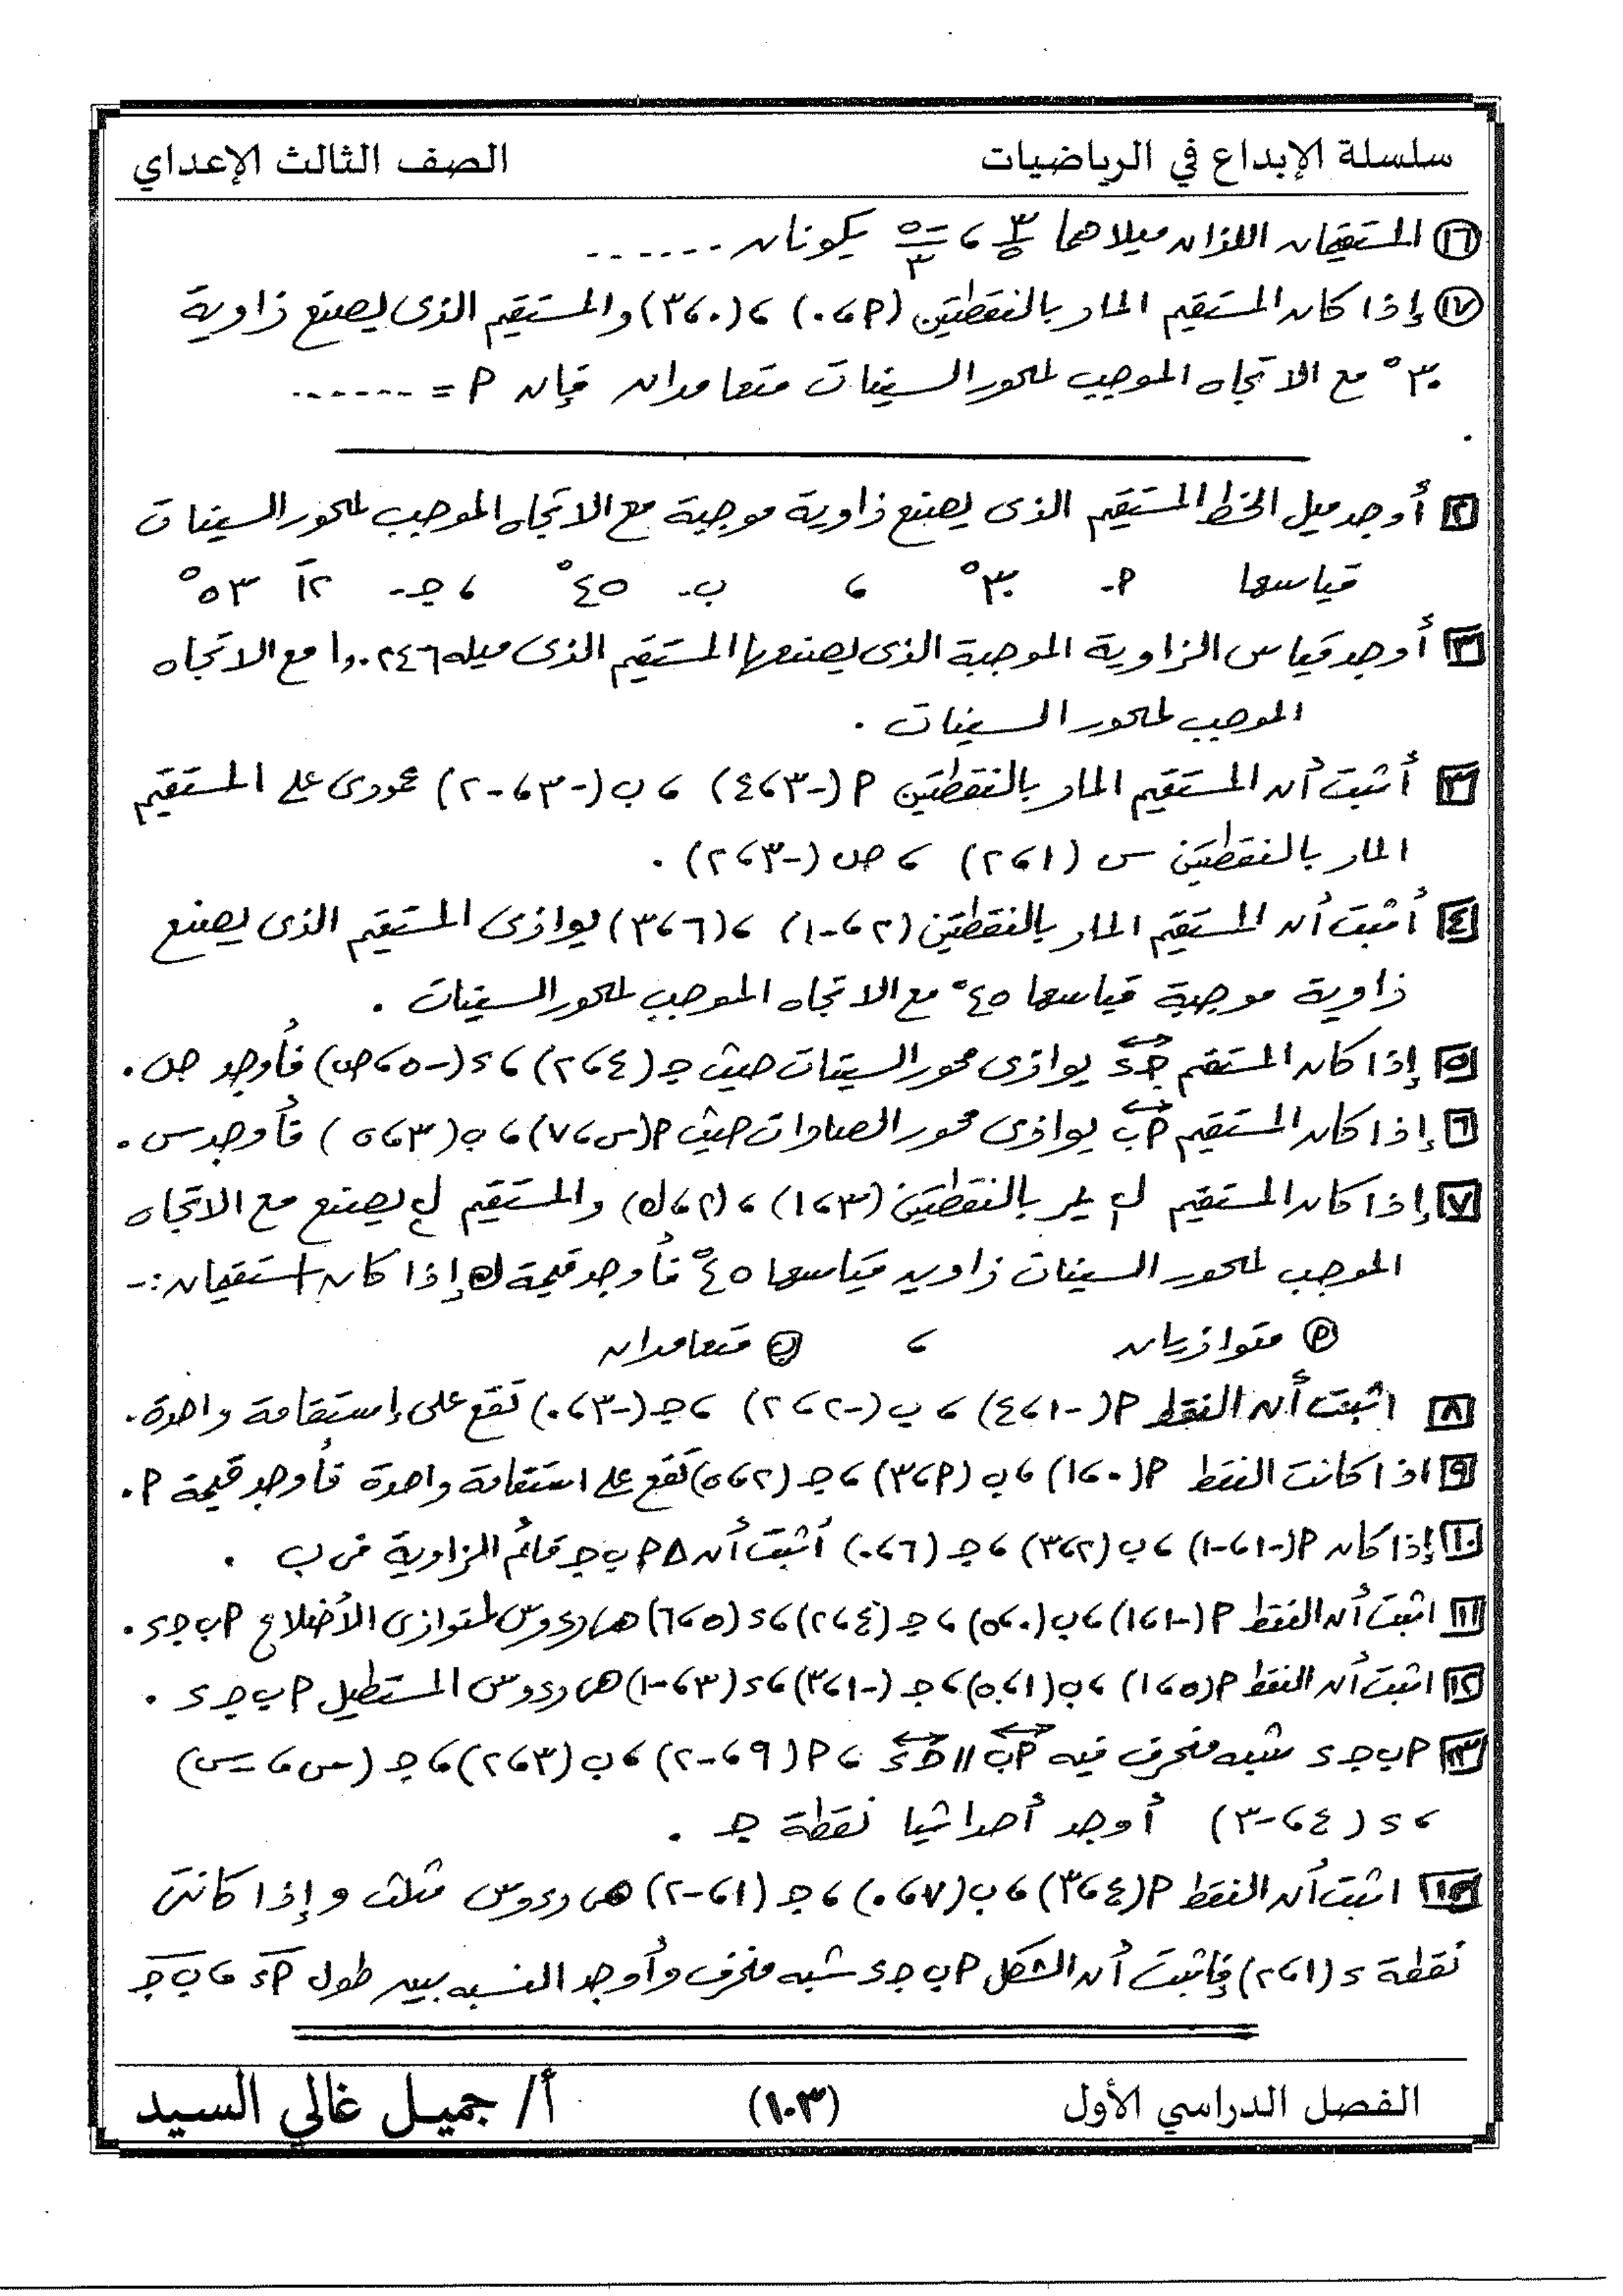 سلسلة الإبداع في الرياضيات
الصف الثالث الإعداي
١٦ المستقيمان اللذان ميلاهما ٣/٥ ، -٥/٣ يكونان ------
١٧ إذا كان المستقيم المار بالنقطتين (أ ، ٠) ، (٠ ، ٣) والمستقيم الذى يصنع زاوية
٣٠° مع الاتجاه الموجب لمحور السينات متعامدان فإن أ = ------
٢ أوجد ميل الخط المستقيم الذى يصنع زاوية موجبة مع الاتجاه الموجب لمحور السينات
قياسها أ- ٣٠° ، ب- ٤٥° ، جـ- ١٢َ ٥٣°
٣ أوجد قياس الزاوية الموجبة الذى يصنعها المستقيم الذى ميله ١,٠٢٤٦ مع الاتجاه
الموجب لمحور السينات .
٣ أثبت أن المستقيم المار بالنقطتين أ (-٣ ، ٤) ، ب (-٣ ، -٢) عمودى على المستقيم
المار بالنقطتين س (١ ، ٢) ، ص (-٣ ، ٢) .
٤ أثبت أن المستقيم المار بالنقطتين (٢ ، -١) ، (٦ ، ٣) يوازى المستقيم الذى يصنع
زاوية موجبة قياسها ٤٥° مع الاتجاه الموجب لمحور السينات .
٥ إذا كان المستقم جـ د يوازى محور السينات حيث جـ (٤ ، ٢) ، د (-٥ ، ص) فأوجد ص .
٦ إذا كان المستقيم أ ب يوازى محور الصادات حيث أ (س ، ٧) ، ب (٣ ، ٥) فأوجد س .
٧ إذا كان المستقيم ل١ يمر بالنقطتين (٣ ، ١) ، (٢ ، ك) والمستقيم ل٢ يصنع مع الاتجاه
الموجب لمحور السينات زاويه قياسها ٤٥° فأوجد قيمة ك إذا كان المستقيمان :-
أ متوازيان ، ب متعامدان
٨ اثبت أن النقط أ (-١ ، ٤) ، ب (-٢ ، ٢) ، جـ (-٣ ، ٠) تقع على إستقامة واحدة .
٩ اذا كانت النقط أ (٠ ، ١) ، ب (أ ، ٣) ، جـ (٢ ، ٥) تقع على استقامة واحدة فأوجد قيمة أ .
١٠ إذا كان أ (-١ ، -١) ، ب (٢ ، ٣) ، جـ (٦ ، ٠) أثبت أن Δ أ ب جـ قائم الزاوية فى ب .
١١ اثبت أن النقط أ (-١ ، ١) ، ب (٠ ، ٥) ، جـ (٤ ، ٢) ، د (٥ ، ٦) هى رءوس لمتوازى الأضلاع أ ب جـ د .
١٢ اثبت أن النقط أ (٥ ، ١) ، ب (١ ، ٥) ، جـ (-١ ، ٣) ، د (٣ ، -١) هى رءوس المستطيل أ ب جـ د .
١٣ أ ب جـ د شبه منحرف فيه أ ب // جـ د ، أ (٩ ، -٢) ، ب (٣ ، ٢) ، جـ (س ، -س)
، د (٤ ، -٣) أوجد أحداثيا نقطة جـ .
اثبت أن النقط أ (٤ ، ٣) ، ب (٧ ، ٠) ، جـ (١ ، -٢) هى رءوس مثلث وإذا كانت
نقطة د (١ ، ٢) فاثبت أن الشكل أ ب جـ د شبه منحرف وأوجد النسبه بين طول أ د ، ب جـ
الفصل الدراسي الأول
(١٠٣)
أ/ جميل غالي السيد